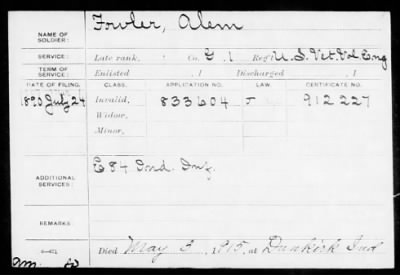 NAME OF SOLDIER: Fowler, Alem
SERVICE: Late rank, Co. G. 1 Reg't U. S. Vet. Vol. Eng
TERM OF SERVICE: Enlisted , 1 Discharged , 1
DATE OF FILING. CLASS. APPLICATION NO. LAW. CERTIFICATE NO.
1890 July 24 Invalid, 833604 J 912227
Widow,
Minor,
ADDITIONAL SERVICES: E 84 Ind. Inf.
REMARKS:
Died May 3, 1915, at Dunkirk Ind